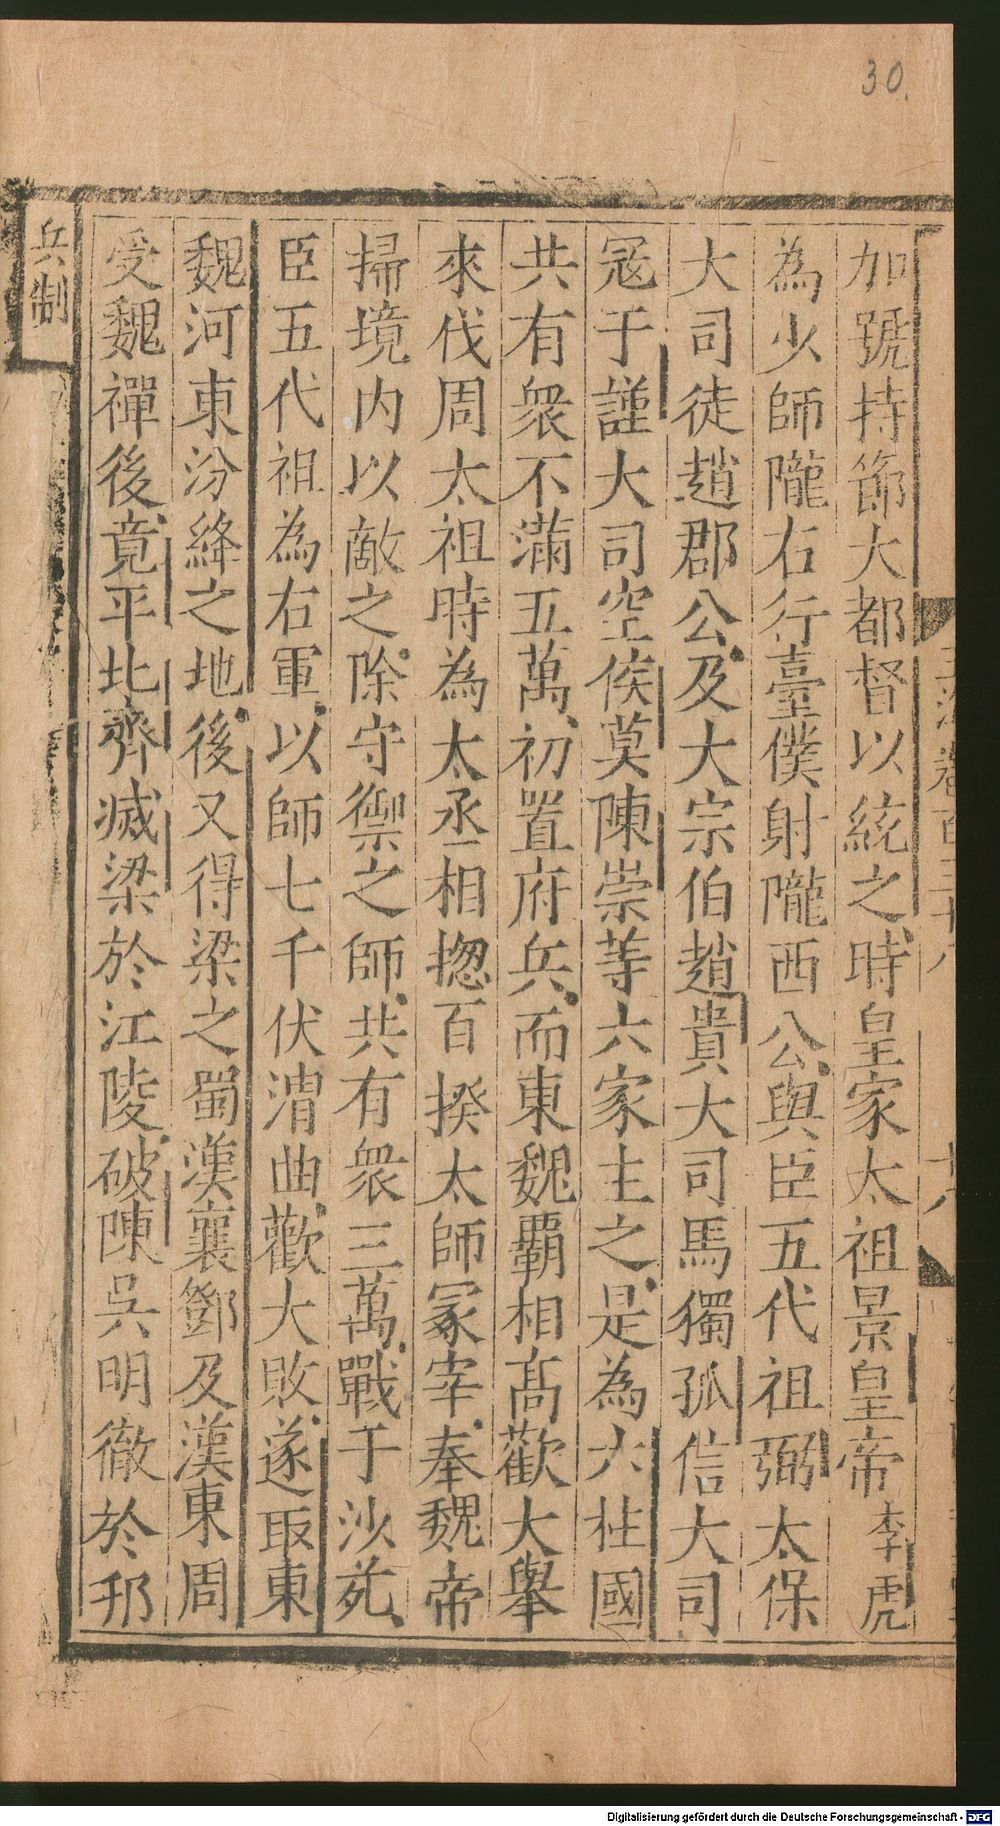 30.
加號持節大都督以統之時皇家太祖景皇帝李虎
為少師隴右行臺僕射隴西公與臣五代祖弼太保
大司徒趙郡公及大宗伯趙貴大司馬獨孤信大司
寇于謹大司空侯莫陳崇等六家主之是為六柱國
共有衆不滿五萬初置府兵而東魏覇相髙歡大舉
來伐周太祖時為太丞相揔百揆太師冡宰奉魏帝
掃境内以敵之除守禦之師共有衆三萬戰于沙苑
臣五代祖為右軍以師七千伏渭曲歡大敗遂取東
魏河東汾絳之地後又得梁之蜀漢襄鄧及漢東周
受魏禪後竟平北齊滅梁於江陵破陳吳明徹於邳
兵制
Digitalisierung gefördert durch die Deutsche Forschungsgemeinschaft - DFG